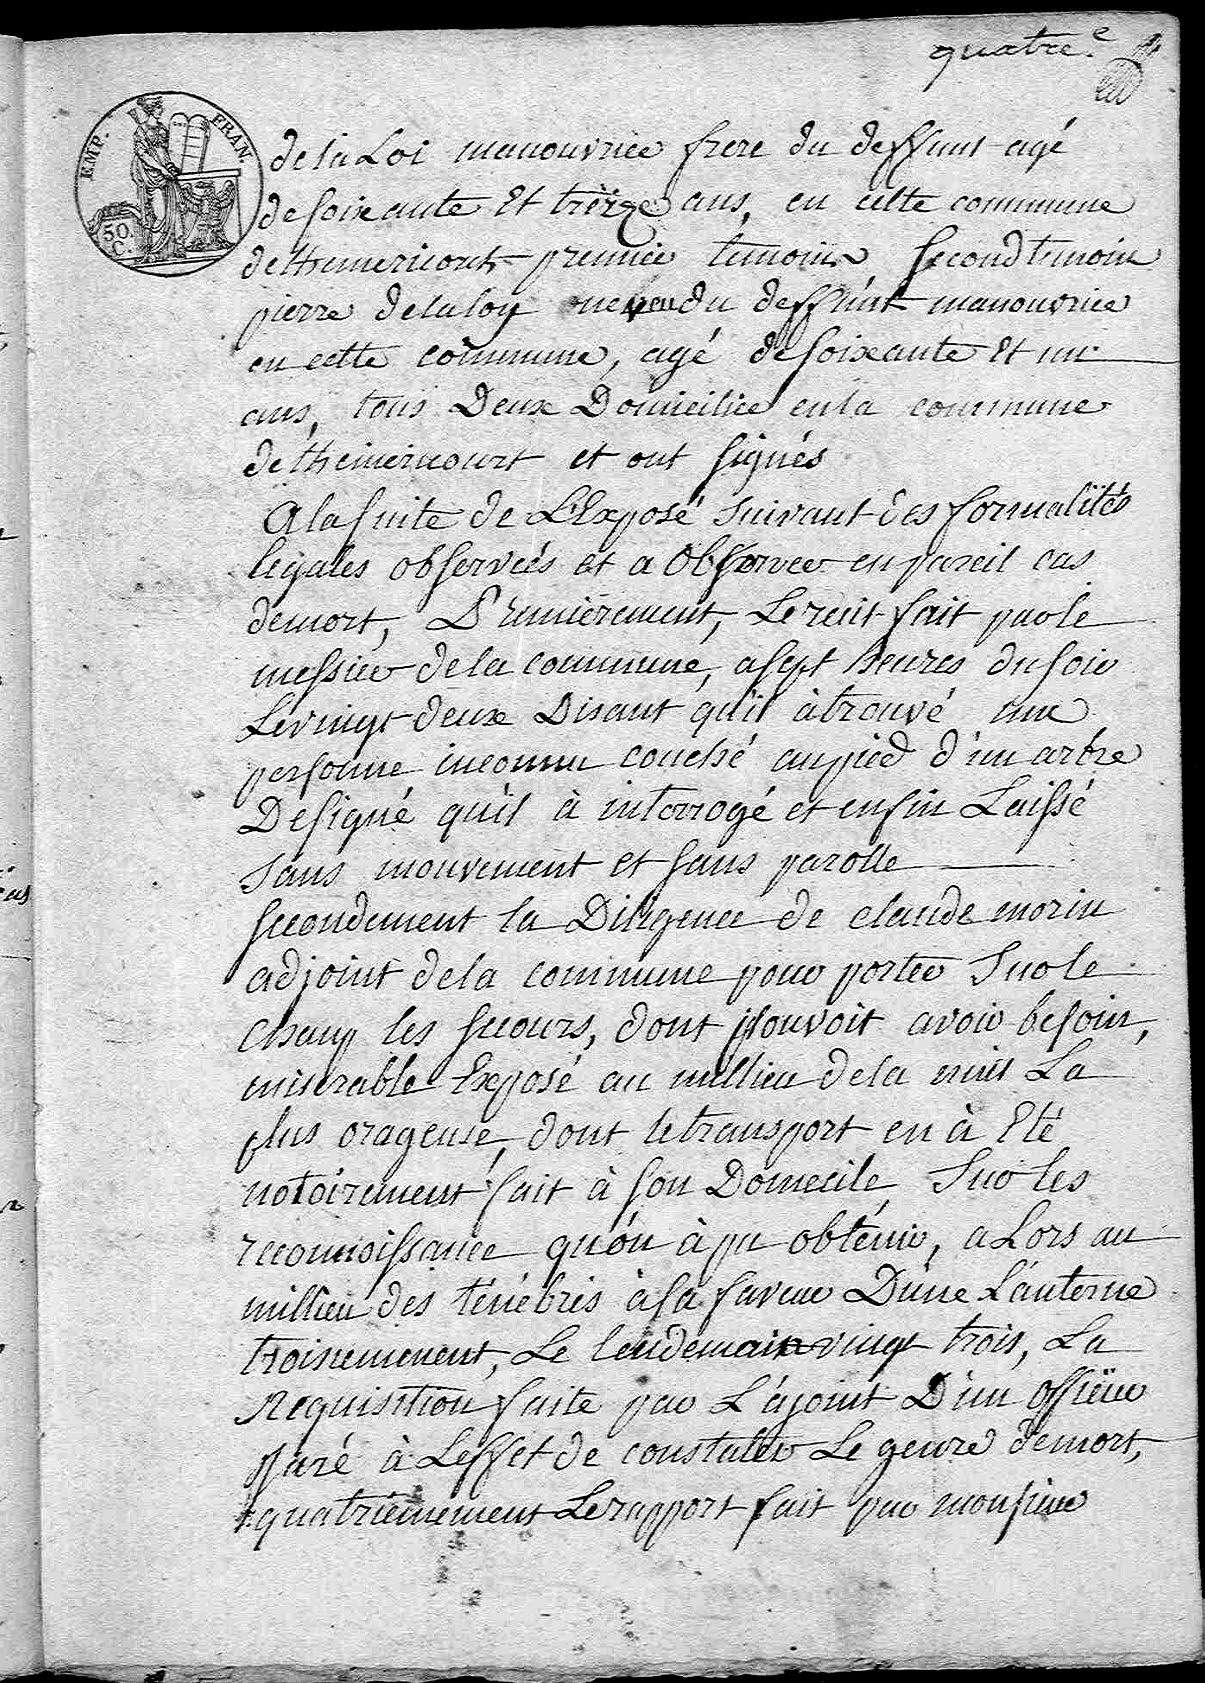 quatre.e
EMP. FRAN.
50. C.
de la Loi manouvrier frere du deffunt agé
de soixante Et treize ans, en cette commune
de themericourt premier temoin, second temoin
pierre delaloy neveu du deffunt manouvrier
en cette commune, agé de soixante Et un
ans, tous Deux Domicilié en la commune
de themericourt et ont signés
A la suite de L'Exposé suivant des formalités
légales observées et a observer en pareil cas
de mort, Premièrement, Le récit fait par le
messier de la commune, a sept heures du soir
Le vingt deux Disant qu'il à trouvé une
personne inconnu couché au pied d'un arbre
Designé qu'il à interrogé et enfin Laissé
sans mouvement et sans parolle
secondement la Diligence de claude morin
adjoint de la commune pour porter sur le
champ les secours, dont pouvoit avoir besoin,
miserable Exposé au millieu de la nuit La
plus orageuse, dont le transport en à Eté
notoirement fait à son Domicile, sur les
reconnoissance qu'on à pu obtenir, a Lors au
millieu des ténébres à la faveur D'une Lanterne
troisiemement, Le lendemain vingt trois, La
Requisition faite par L'ajoint D'un officier
paré à L'effet de constater Le genre de mort,
quatrièmement Le rapport fait par monsieur